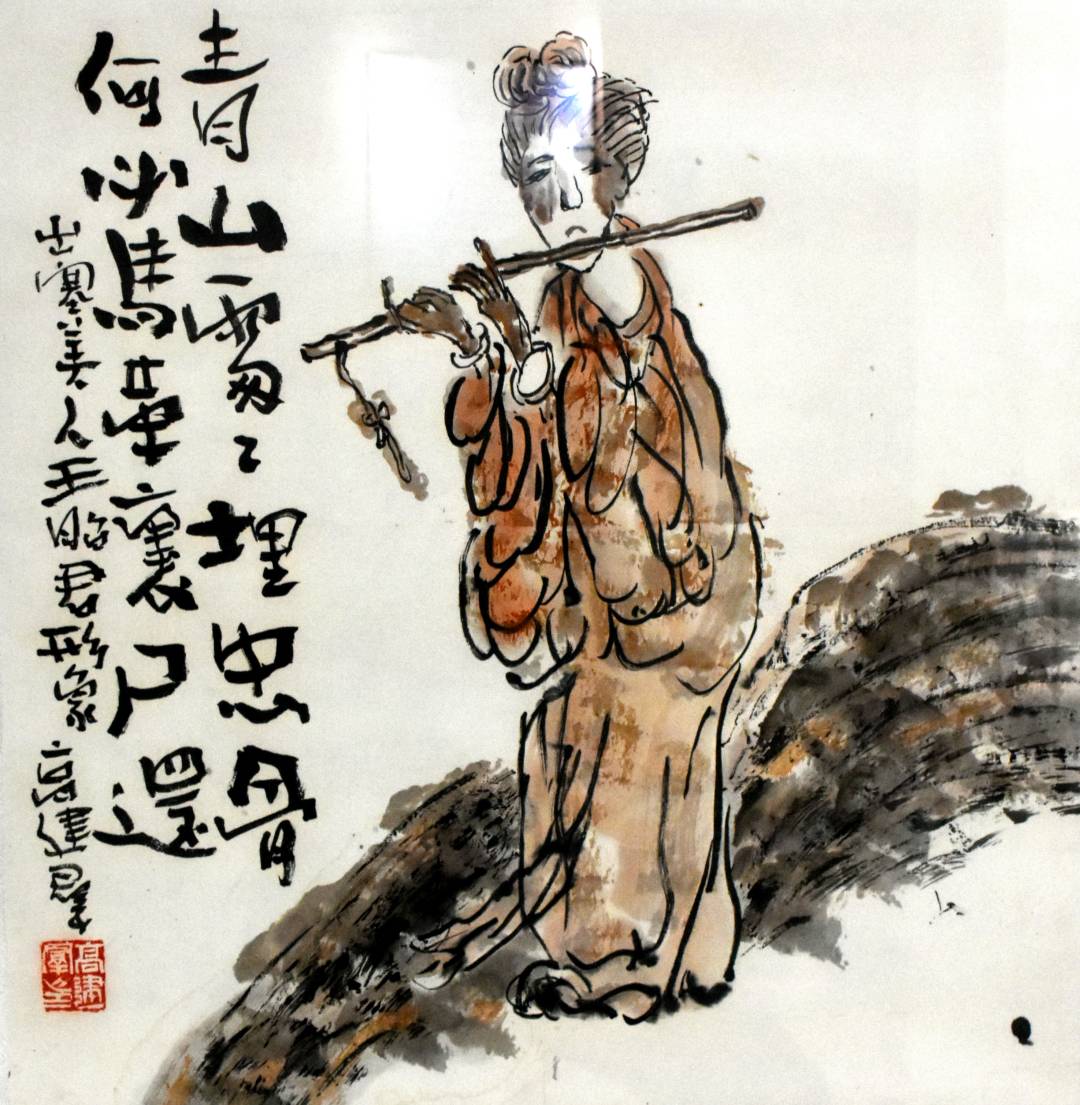 青山處〻埋忠骨
何必馬革裹尸還
出塞美人王昭君形象 高建羣
高建羣印